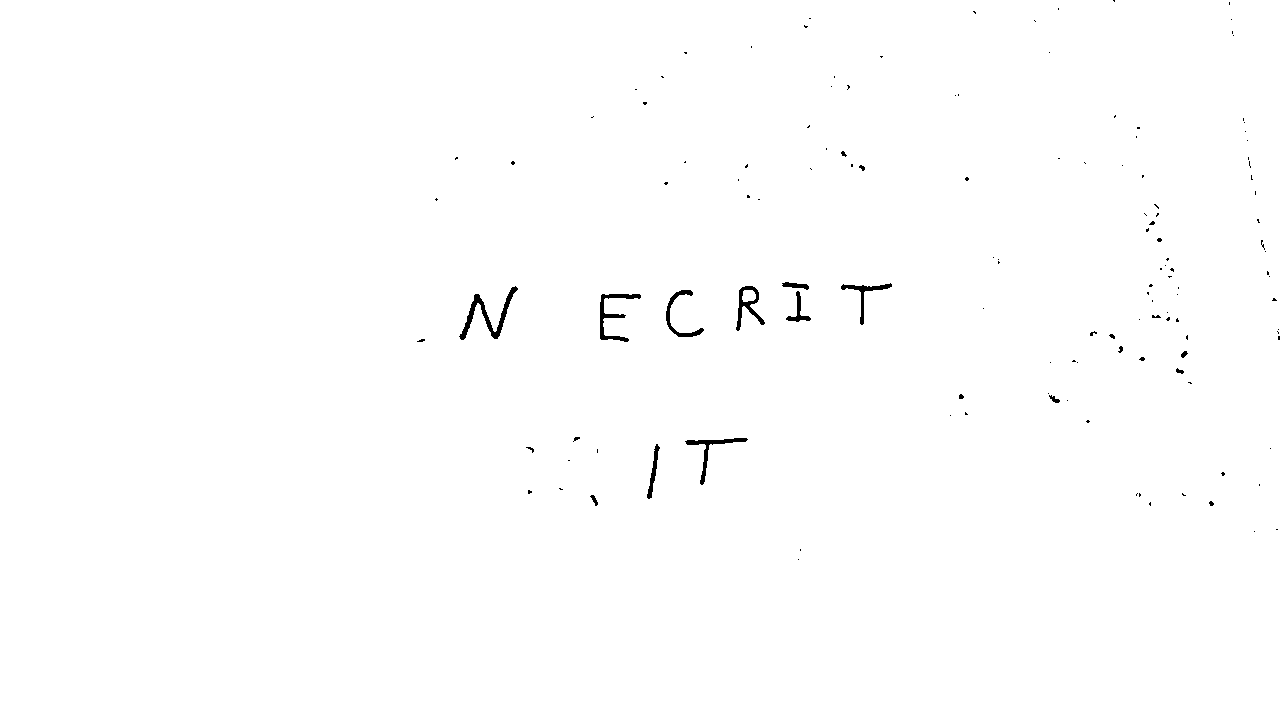 N ECRIT
IT